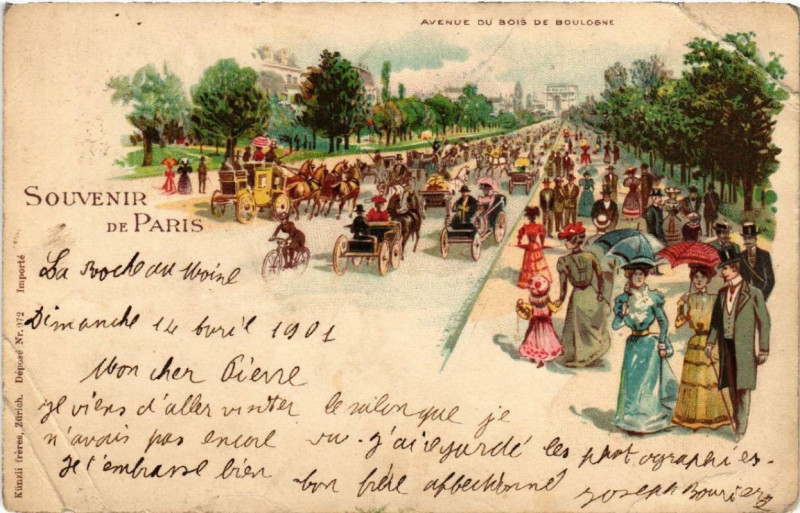 AVENUE DU BOIS DE BOULOGNE
SOUVENIR
DE PARIS
La Roche au Moine
Dimanche 14 Avril 1901
Mon cher Pierre
je viens d'aller visiter le salon que je
n'avais pas encore vu. j'ai regardé les photographies.
Je t'embrasse bien ton frère affectionné
Joseph
Künzli frères, Zürich. Déposé Nr. 972 Importé